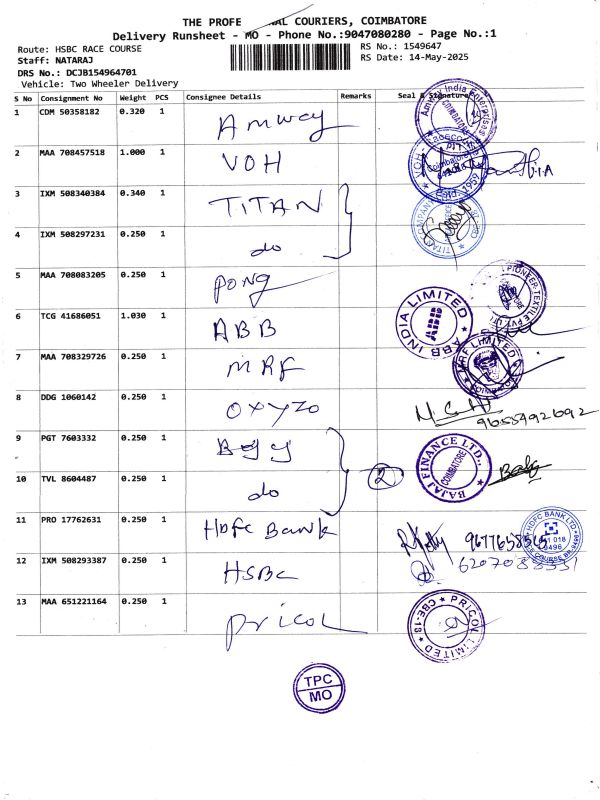 THE PROFE NAL COURIERS, COIMBATORE
Delivery Runsheet - MO - Phone No.:9047080280 - Page No.:1
Route: HSBC RACE COURSE
RS No.: 1549647
Staff: NATARAJ
RS Date: 14-May-2025
DRS No.: DCJB154964701
Vehicle: Two Wheeler Delivery
S No Consignment No Weight PCS Consignee Details Remarks Seal & Signature
1 CDM 50358182 0.320 1 Amway
Amway India Enterprises COIMBATORE
2 MAA 708457518 1.000 1 VOH
VOH Coimbatore Estd. 1959
3 IXM 508340384 0.340 1 TITAN
TITAN COMPANY
4 IXM 508297231 0.250 1 do
5 MAA 708083205 0.250 1 Pong
PIONEER TEXTILE
6 TCG 41686051 1.030 1 ABB
ABB INDIA LIMITED ABB
7 MAA 708329726 0.250 1 MRF
MRF LIMITED
8 DDG 1060142 0.250 1 OXYZO
9 PGT 7603332 0.250 1
BAJAJ FINANCE LTD., COIMBATORE
10 TVL 8604487 0.250 1 do 2
11 PRO 17762631 0.250 1 Hdfc Bank
HDFC BANK LTD
12 IXM 508293387 0.250 1 HSBC
13 MAA 651221164 0.250 1 Pricol
PRICOL LIMITED CBE-18
TPC
MO